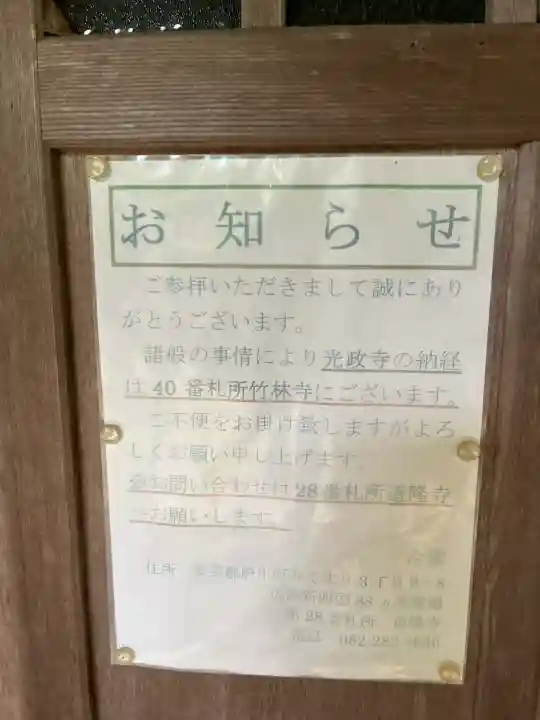 お知らせ
ご参拝いただきまして誠にあり
がとうございます。
諸般の事情により光政寺の納経
は40番札所竹林寺にございます。
ご不便をお掛け致しますがよろ
しくお願い申し上げます
お問い合わせは28番札所道隆寺
へお願いします。
合掌
住所 3丁目
88ヶ所霊場
第28番札所 道隆寺
電話